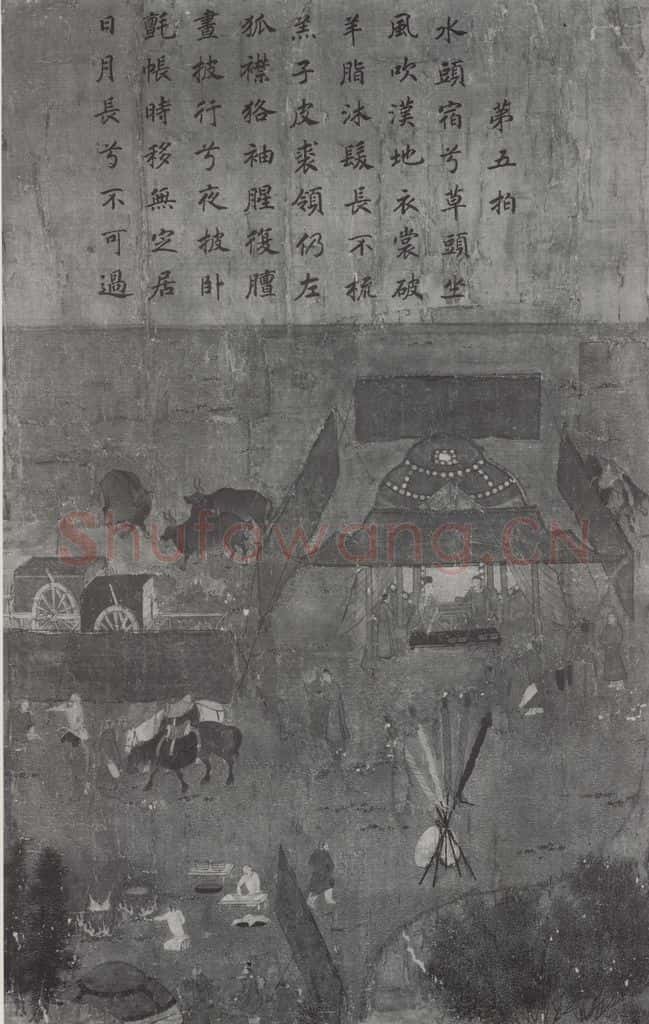 第五拍
水頭宿兮草頭坐
風吹漢地衣裳破
羊脂沐髮長不梳
羔子皮裘領仍左
狐襟狢袖腥復膻
晝披行兮夜披卧
氈帳時移無定居
日月長兮不可過
Shufawang.CN